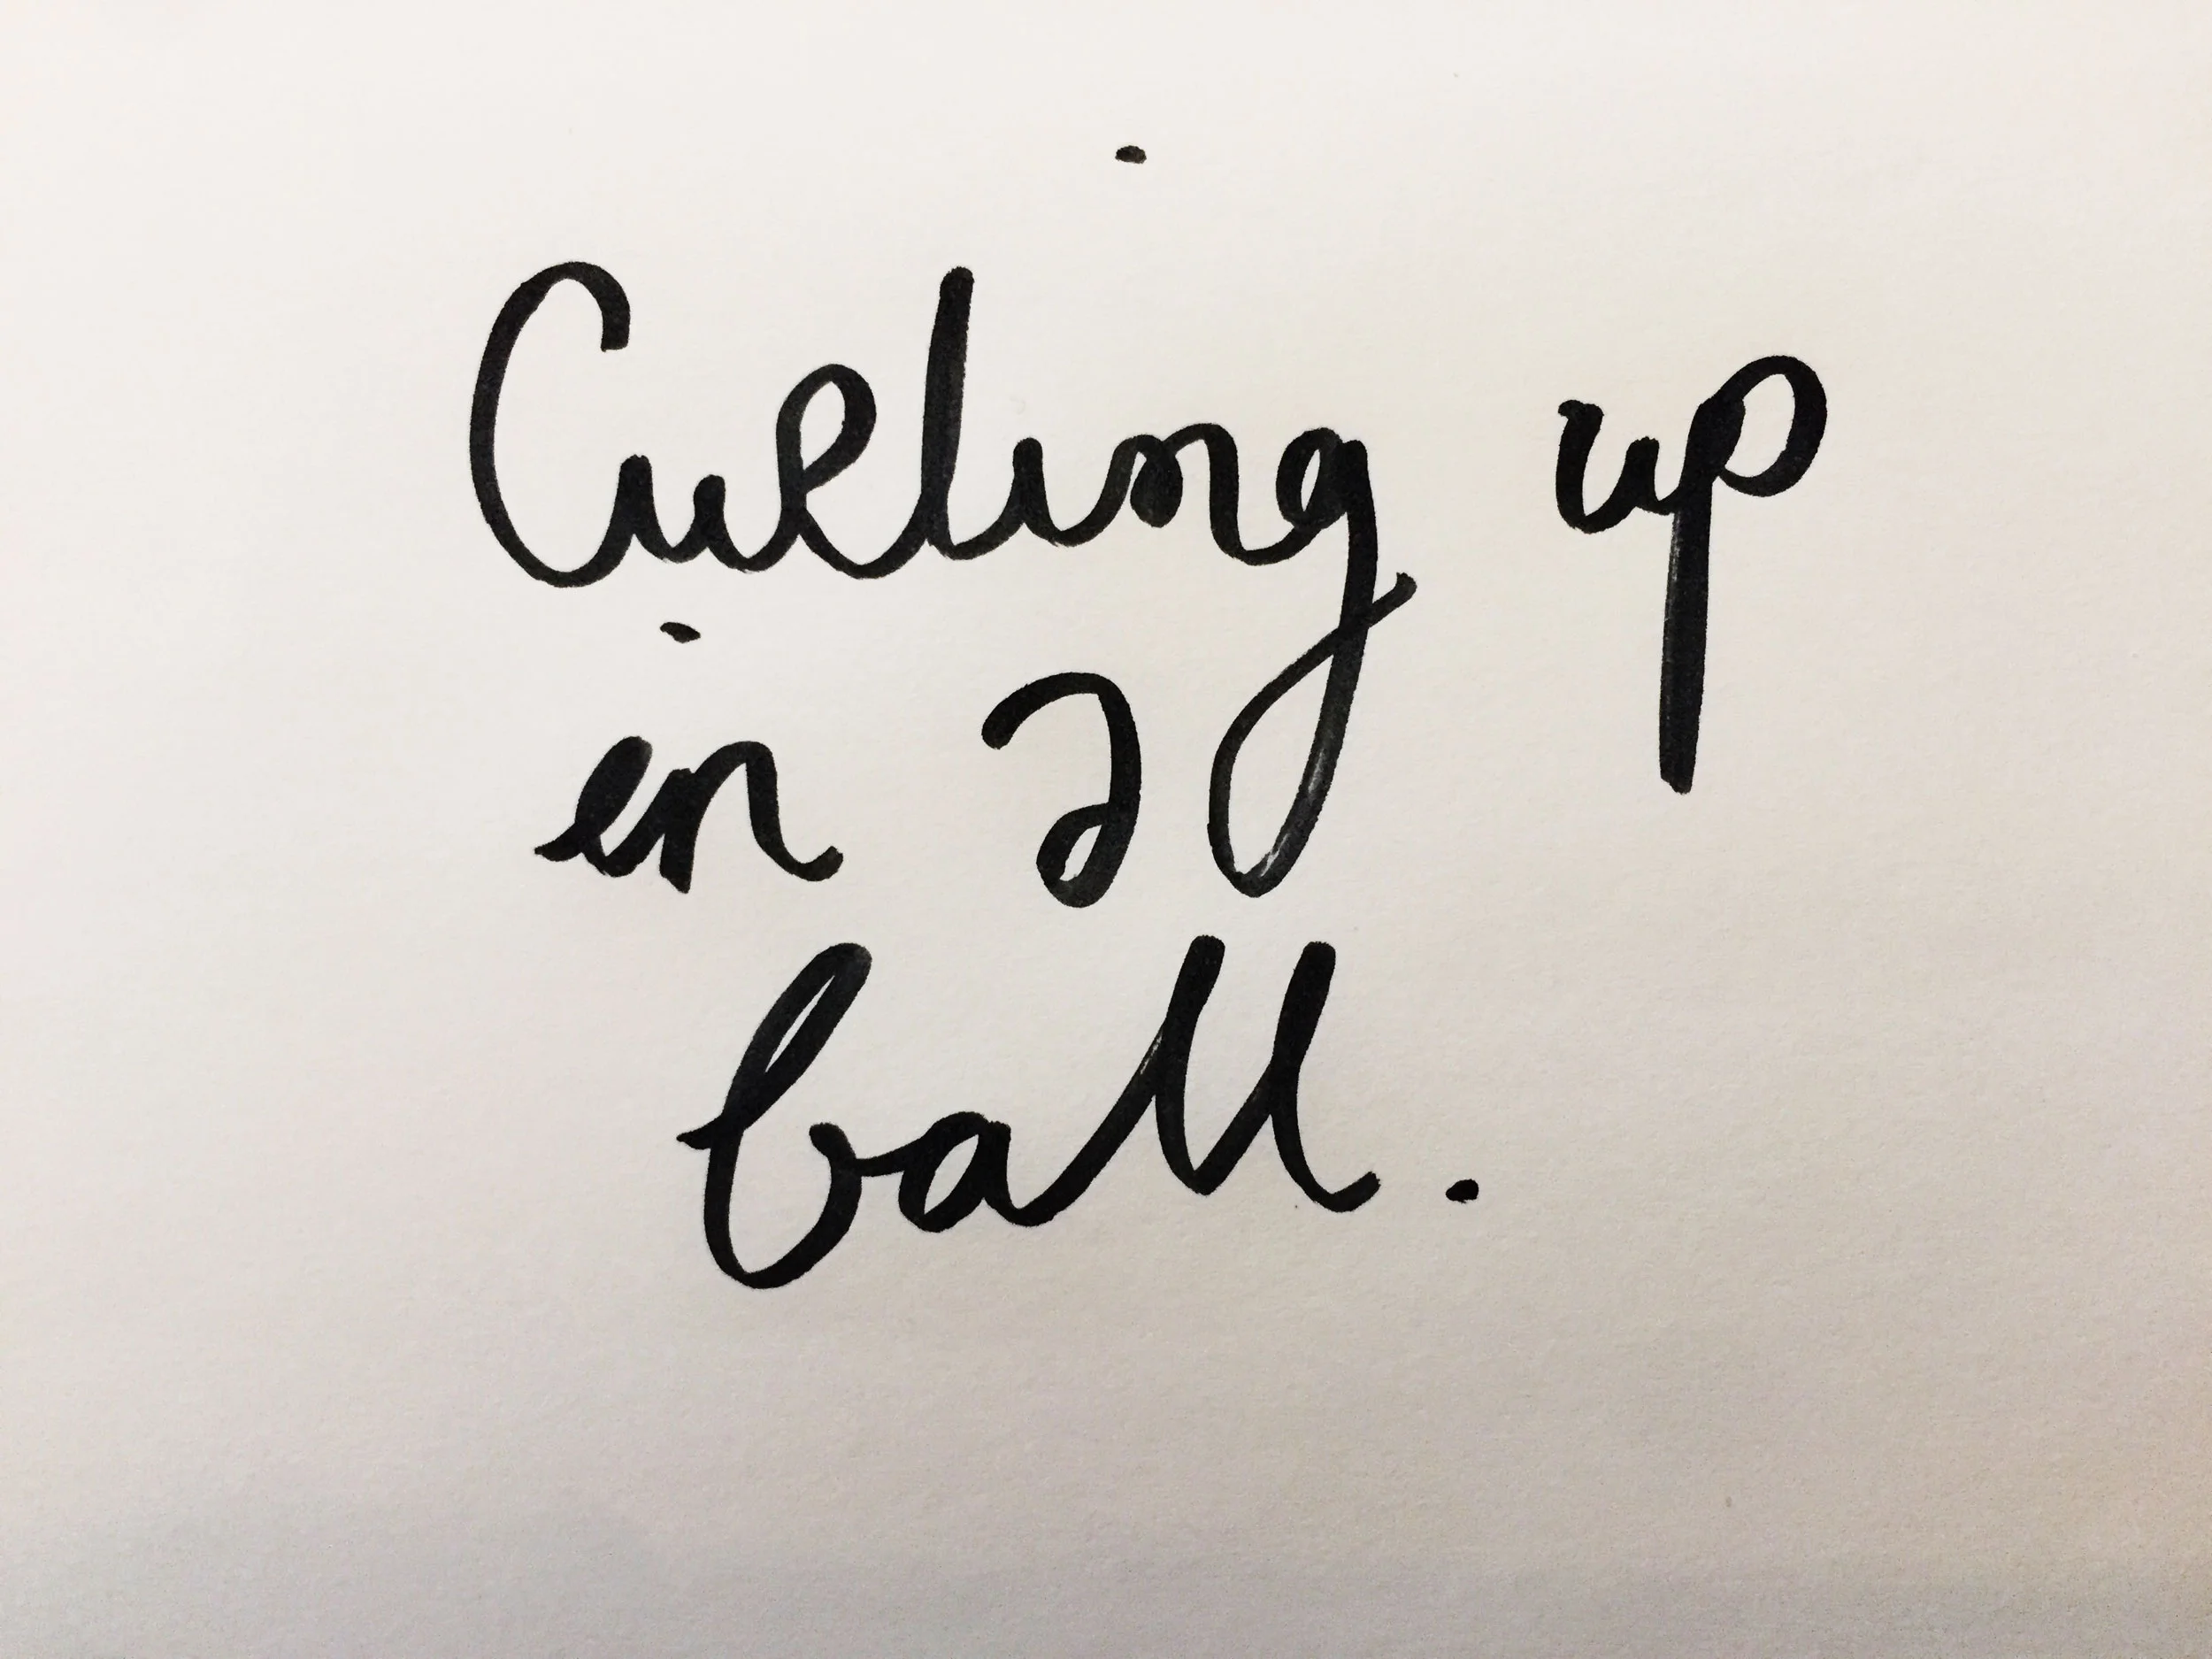 Curling up
in a
ball.